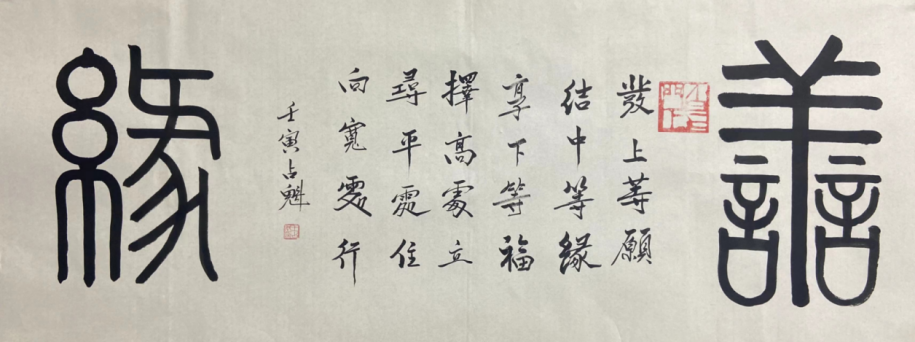 譱
發上等願
結中等緣
享下等福
擇高處立
尋平處住
向寬處行
壬寅占魁
緣